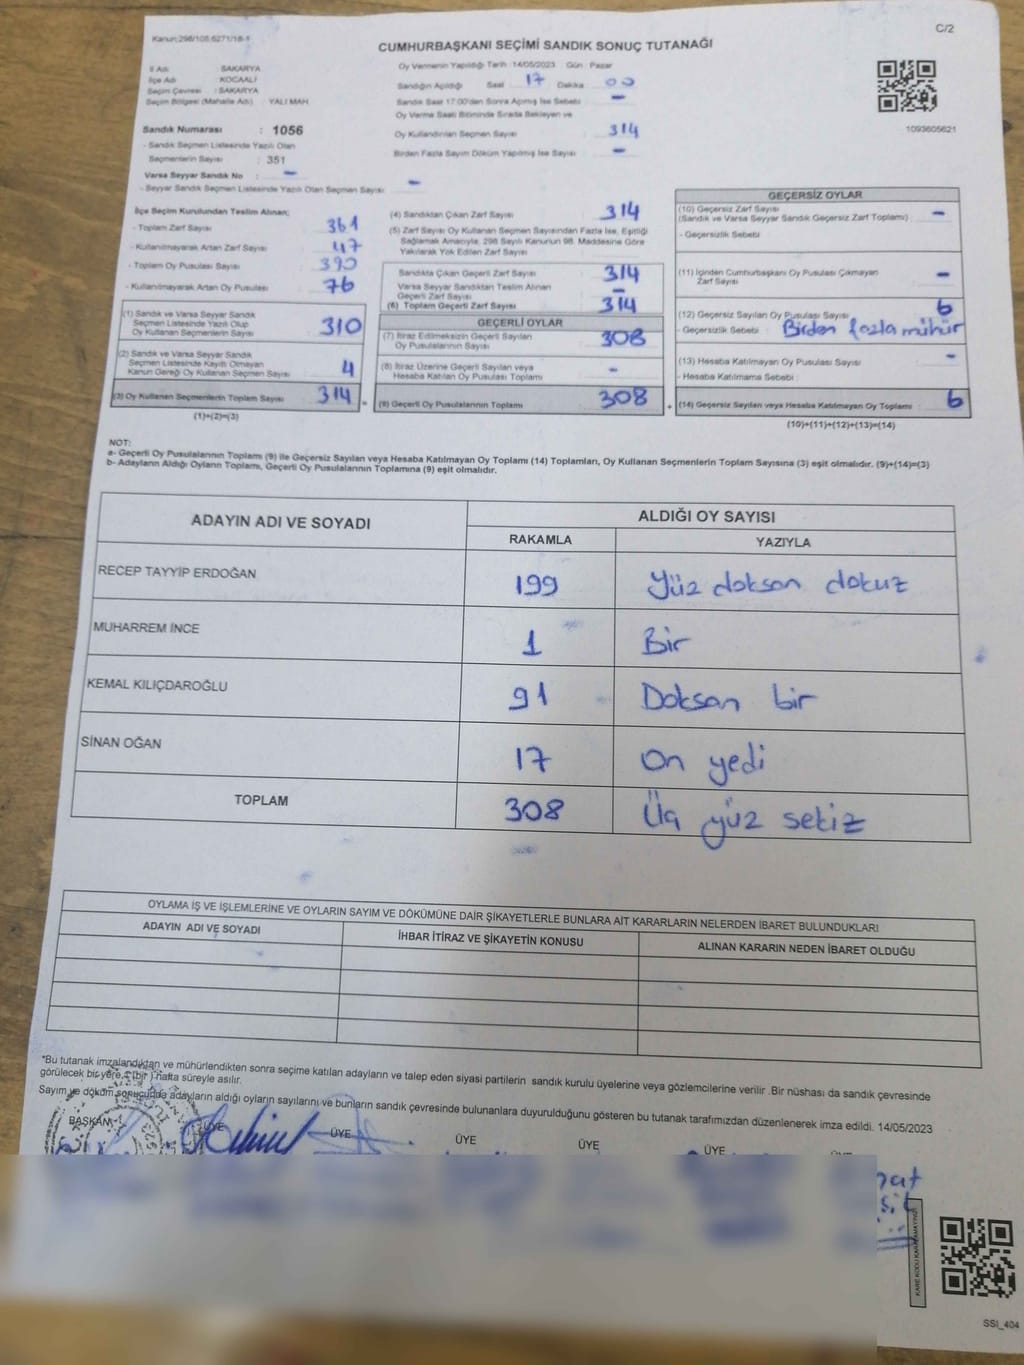 Kanun:298/105,6271/18-1
C/2
CUMHURBAŞKANI SEÇİMİ SANDIK SONUÇ TUTANAĞI
İl Adı : SAKARYA
İlçe Adı : KOCAALİ
Seçim Çevresi : SAKARYA
Seçim Bölgesi (Mahalle Adı) YALI MAH.
Sandık Numarası : 1056
- Sandık Seçmen Listesinde Yazılı Olan
Seçmenlerin Sayısı : 351
Varsa Seyyar Sandık No : -
- Seyyar Sandık Seçmen Listesinde Yazılı Olan Seçmen Sayısı : -
Oy Vermenin Yapıldığı Tarih :14/05/2023 Gün : Pazar
Sandığın Açıldığı Saat 17 Dakika 00
Sandık Saat 17:00'den Sonra Açılmış İse Sebebi -
Oy Verme Saati Bitiminde Sırada Bekleyen ve
Oy Kullandırılan Seçmen Sayısı 314
Birden Fazla Sayım Döküm Yapılmış İse Sayısı -
1093605621
İlçe Seçim Kurulundan Teslim Alınan;
- Toplam Zarf Sayısı 361
- Kullanılmayarak Artan Zarf Sayısı 47
- Toplam Oy Pusulası Sayısı 390
- Kullanılmayarak Artan Oy Pusulası 76
(1) Sandık ve Varsa Seyyar Sandık
Seçmen Listesinde Yazılı Olup
Oy Kullanan Seçmenlerin Sayısı 310
(2) Sandık ve Varsa Seyyar Sandık
Seçmen Listesinde Kayıtlı Olmayan
Kanun Gereği Oy Kullanan Seçmen Sayısı 4
(3) Oy Kullanan Seçmenlerin Toplam Sayısı 314
(1)+(2)=(3)
(4) Sandıktan Çıkan Zarf Sayısı 314
(5) Zarf Sayısı Oy Kullanan Seçmen Sayısından Fazla İse, Eşitliği
Sağlamak Amacıyla, 298 Sayılı Kanunun 98. Maddesine Göre
Yakılarak Yok Edilen Zarf Sayısı
Sandıkta Çıkan Geçerli Zarf Sayısı 314
Varsa Seyyar Sandıktan Teslim Alınan
Geçerli Zarf Sayısı -
(6) Toplam Geçerli Zarf Sayısı 314
GEÇERLİ OYLAR
(7) İtiraz Edilmeksizin Geçerli Sayılan
Oy Pusulalarının Sayısı 308
(8) İtiraz Üzerine Geçerli Sayılan veya
Hesaba Katılan Oy Pusulası Toplamı -
(9) Geçerli Oy Pusulalarının Toplamı 308
GEÇERSİZ OYLAR
(10) Geçersiz Zarf Sayısı
(Sandık ve Varsa Seyyar Sandık Geçersiz Zarf Toplamı) -
- Geçersizlik Sebebi
(11) İçinden Cumhurbaşkanı Oy Pusulası Çıkmayan
Zarf Sayısı -
(12) Geçersiz Sayılan Oy Pusulası Sayısı 6
- Geçersizlik Sebebi : Birden fazla mühür
(13) Hesaba Katılmayan Oy Pusulası Sayısı -
- Hesaba Katılmama Sebebi :
(14) Geçersiz Sayılan veya Hesaba Katılmayan Oy Toplamı 6
(10)+(11)+(12)+(13)=(14)
NOT:
a- Geçerli Oy Pusulalarının Toplamı (9) ile Geçersiz Sayılan veya Hesaba Katılmayan Oy Toplamı (14) Toplamları, Oy Kullanan Seçmenlerin Toplam Sayısına (3) eşit olmalıdır. (9)+(14)=(3)
b- Adayların Aldığı Oyların Toplamı, Geçerli Oy Pusulalarının Toplamına (9) eşit olmalıdır.
ADAYIN ADI VE SOYADI
ALDIĞI OY SAYISI
RAKAMLA YAZIYLA
RECEP TAYYİP ERDOĞAN 199 Yüz doksan dokuz
MUHARREM İNCE 1 Bir
KEMAL KILIÇDAROĞLU 91 Doksan bir
SİNAN OĞAN 17 On yedi
TOPLAM 308 Üç yüz sekiz
OYLAMA İŞ VE İŞLEMLERİNE VE OYLARIN SAYIM VE DÖKÜMÜNE DAİR ŞİKAYETLERLE BUNLARA AİT KARARLARIN NELERDEN İBARET BULUNDUKLARI
ADAYIN ADI VE SOYADI İHBAR İTİRAZ VE ŞİKAYETİN KONUSU ALINAN KARARIN NEDEN İBARET OLDUĞU
*Bu tutanak imzalandıktan ve mühürlendikten sonra seçime katılan adayların ve talep eden siyasi partilerin sandık kurulu üyelerine veya gözlemcilerine verilir. Bir nüshası da sandık çevresinde
görülecek bir yere, 1 (bir ) hafta süreyle asılır.
Sayım ve döküm sonucunda adayların aldığı oyların sayılarını ve bunların sandık çevresinde bulunanlara duyurulduğunu gösteren bu tutanak tarafımızdan düzenlenerek imza edildi. 14/05/2023
BAŞKAN ÜYE ÜYE ÜYE ÜYE ÜYE
SSI_404